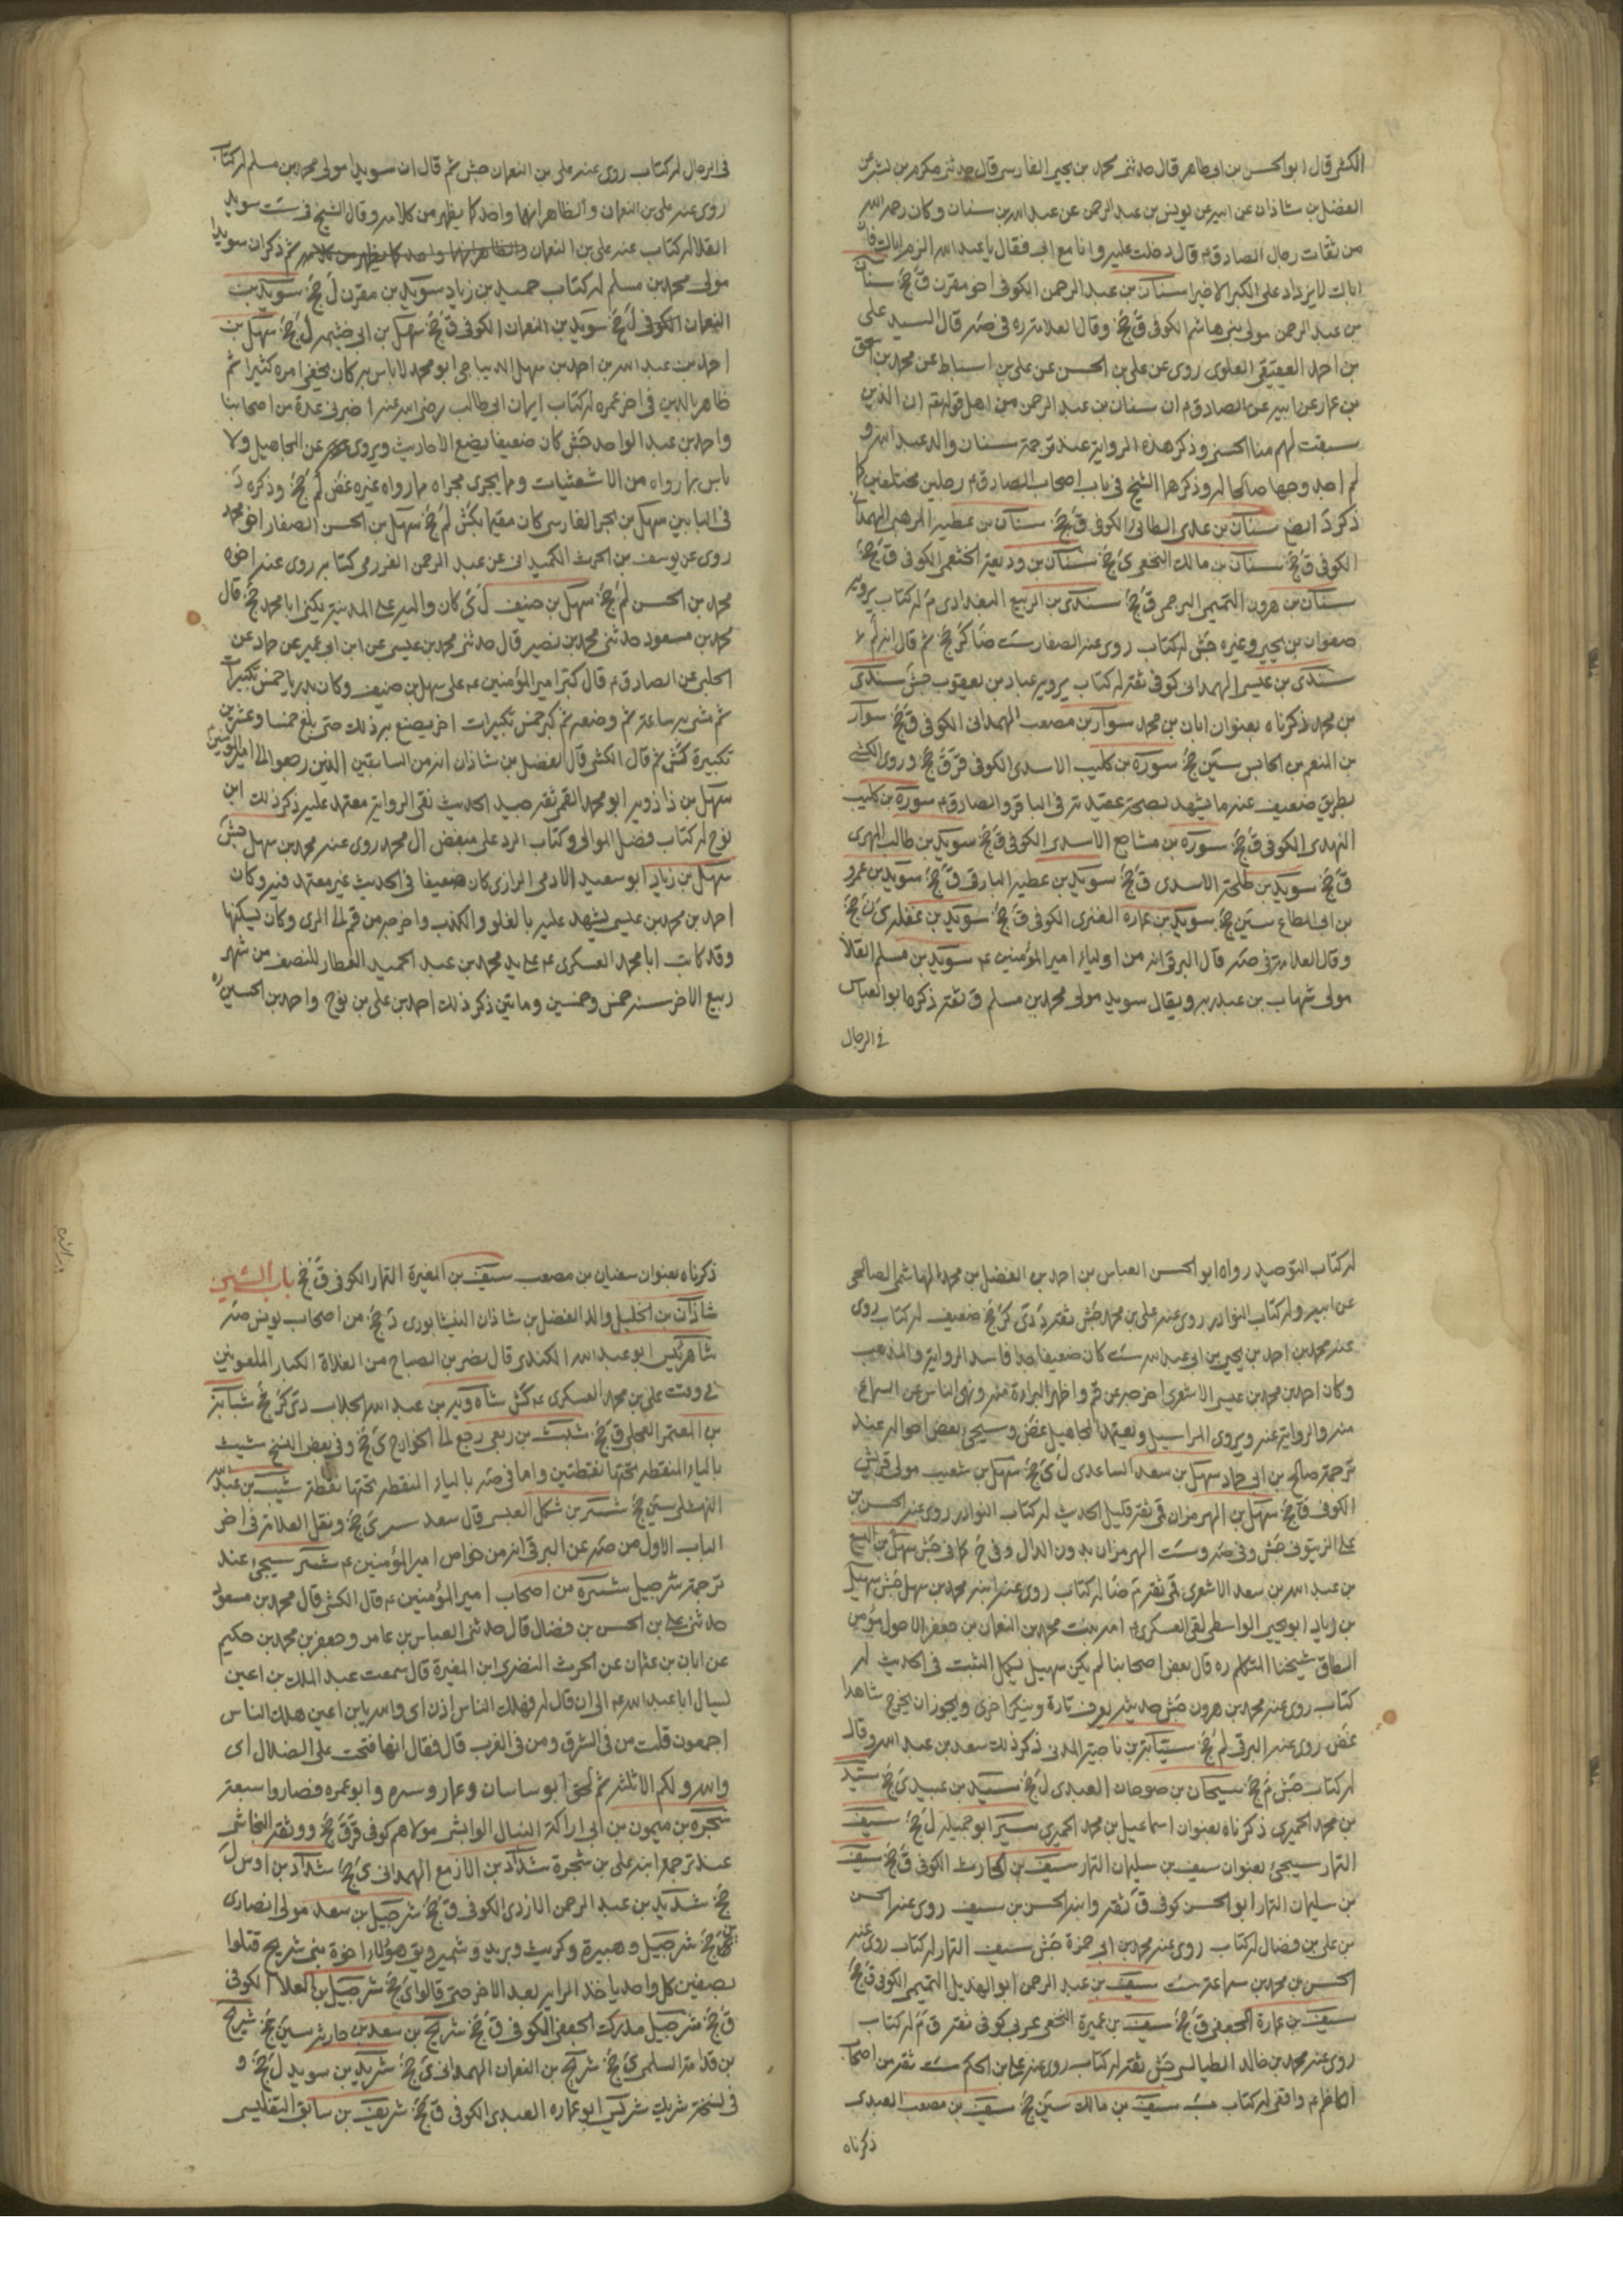 الكشى قال ابو الحسن بن ابى طاهر قال حدثنى محمد بن يحيى الفارسى قال حدثنى مكرم بن بشر عن
الفضل بن شاذان عن ابيه عن يونس بن عبد الرحمن عن عبد الله بن سنان وكان رحمه الله
من ثقات رجال الصادق ع قال دخلت عليه وانا مع ابى فقال يا عبد الله الزم اباك فان
اباك لا يزداد على الكبر الا خيرا سنان بن عبد الرحمن الكوفى اخو مقرن ق جخ سنان
بن عبد الرحمن مولى بنى هاشم الكوفى ق جخ وقال العلامة ره فى صه قال السيد على
بن احمد العقيقى العلوى روى عن على بن الحسن عن على بن اسباط عن محمد بن اسحق
بن عمار عن ابيه عن الصادق ع ان سنان بن عبد الرحمن من اهل قوله تع ان الذين
سبقت لهم منا الحسنى وذكر هذه الرواية عند ترجمة سنان والد عبد الله و
لم اجد وجها صالحا له وذكرهما الشيخ فى باب اصحاب الصادق ع رجلين مختلفين كما
ذكر د ايضا سنان بن عدى الطائى الكوفى ق جخ سنان بن عطية المرهبى الهمدانى
الكوفى ق جخ سنان بن مالك النخعى ى جخ سنان بن وديعة الخثعمى الكوفى ق جخ
سنان بن هرون التميمى البرجمى ق جخ سندى بن الربيع البغدادى م له كتاب يرويه
صفوان بن يحيى وغيره جش له كتاب روى عنه الصفار ست ضا كر جخ ثم قال انه لم
سندى بن عيسى الهمدانى كوفى ثقة له كتاب يرويه عباد بن يعقوب جش سندى
بن محمد ذكرناه بعنوان ابان بن محمد سوار بن مصعب الهمدانى الكوفى ق جخ سوار
بن المنعم بن الحابس سين جخ سورة بن كليب الاسدى الكوفى قر ق جخ وروى الكشى
بطريق ضعيف عنه ما يشهد بصحة عقيدته فى الباقر والصادق ع سورة بن كليب
النهدى الكوفى ق جخ سورة بن مشاجع الاسدى الكوفى ق جخ سويد بن طالب المهرى
ق جخ سويد بن طلحة الاسدى ق جخ سويد بن عطية البارقى ق جخ سويد بن عمرو
بن ابى المطاع سين جخ سويد بن عمارة الغنزى الكوفى ق جخ سويد بن غفلة ى ن جخ
وقال العلامة فى صه قال البرقى انه من اولياء امير المؤمنين ع سويد بن مسلم القلا
مولى شهاب بن عبد ربه ويقال سويد مولى محمد بن مسلم ق ثقة ذكره ابو العباس
فى الرجال
فى الرجال له كتاب روى عنه على بن النعمان جش ثم قال ان سويدا مولى محمد بن مسلم له كتاب
روى عنه على بن النعمان والظاهر انهما واحد كما يظهر من كلامه وقال الشيخ فى ست سويد
القلا له كتاب عنه على بن النعمان والظاهر انهما واحد كما يظهر من كلامه ثم ذكر ان سويدا
مولى محمد بن مسلم له كتاب حميد بن زياد سويد بن مقرن ل جخ سويد بن
النعمان الكوفى ل جخ سويد بن النعمان الكوفى ق جخ سهل بن ابى خثيمة ل جخ سهل بن
احمد بن عبد الله بن احمد بن سهل الديباجى ابو محمد لا باس به كان يخفى امره كثيرا ثم
ظاهر بالدين فى اخر عمره له كتاب ايمان ابى طالب رضى الله عنه اخبرنى عدة من اصحابنا
واحمد بن عبد الواحد جش كان ضعيفا يضع الاحاديث ويروى عن المجاهيل ولا
باس بما رواه من الاشعثيات وما يجرى مجراه مما رواه غيره غض لم جخ وذكره د
فى البابين سهل بن بحر الفارسى كان مقيما بكش لم جخ سهل بن الحسن الصفار اخو محمد
روى عن يوسف بن الحرث الكميدانى عن عبد الرحمن العزرمى كتابه روى عنه اخوه
محمد بن الحسن لم جخ سهل بن حنيف ل ى كان واليه على المدينة يكنى ابا محمد جخ قال
محمد بن مسعود حدثنى محمد بن نصير قال حدثنى محمد بن عيسى عن ابن ابى عمير عن حماد عن
الحلبى عن الصادق ع قال كبر امير المؤمنين ع على سهل بن حنيف وكان بدريا خمس تكبيرات
ثم مشى به ساعة ثم وضعه ثم كبر خمس تكبيرات اخر يصنع به ذلك حتى بلغ خمسا وعشرين
تكبيرة كش ثم قال الكشى قال الفضل بن شاذان انه من السابقين الذين رجعوا الى امير المؤمنين
سهل بن زاذويه ابو محمد القمى ثقة جيد الحديث نقى الرواية معتمد عليه ذكر ذلك ابن
نوح له كتاب فضل الموالى وكتاب الرد على مبغضى آل محمد روى عنه محمد بن سهل جش
سهل بن زياد ابو سعيد الادمى الرازى كان ضعيفا فى الحديث غير معتمد فيه وكان
احمد بن محمد بن عيسى يشهد عليه بالغلو والكذب واخرجه من قم الى الرى وكان يسكنها
وقد كاتب ابا محمد العسكرى ع على يد محمد بن عبد الحميد العطار للنصف من شهر
ربيع الاخر سنة خمس وخمسين ومائتين ذكر ذلك احمد بن على بن نوح واحمد بن الحسين
له كتاب التوحيد رواه ابو الحسن العباس بن احمد بن الفضل بن محمد الهاشمى الصالحى
عن ابيه وله كتاب النوادر روى عنه على بن محمد جش ثقة د دى كر جخ ضعيف له كتاب روى
عنه محمد بن احمد بن يحيى بن ابى عبد الله ست كان ضعيفا جدا فاسد الرواية والمذهب
وكان احمد بن محمد بن عيسى الاشعرى اخرجه عن قم واظهر البراءة منه ونهى الناس عن السماع
منه والرواية عنه ويروى المراسيل ويعتمد المجاهيل غض وسيجئ بعض احواله عند
ترجمة صالح بن ابى حماد سهل بن سعد الساعدى ل ى جخ سهل بن شعيب مولى قريش
الكوفى ق جخ سهل بن الهرمزان قمى ثقة قليل الحديث له كتاب النوادر روى عنه الحسن بن
على الزيتونى جش وفى صه وست الهرمزان بدون الدال وفى خ كما فى جش سهل بن اليسع
بن عبد الله بن سعد الاشعرى قمى ثقة م ضا له كتاب روى عنه ابنه محمد بن سهل جش سهيل
بن زياد ابو يحيى الواسطى لقى العسكرى ع امه بنت محمد بن النعمان بن جعفر الاحول مؤمن
الطاق شيخنا المتكلم ره قال بعض اصحابنا لم يكن سهيل بكل الثبت فى الحديث له
كتاب روى عنه محمد بن هرون جش حديثه يعرف تارة وينكر اخرى ويجوز ان يخرج شاهدا
غض روى عنه البرقى لم جخ سيابة بن ناجية المدنى ذكر ذلك سعد بن عبد الله وقال
له كتاب جش م جخ سيحان بن صوحان العبدى ل جخ سيد بن عبيد ى جخ سيد
بن محمد الحميرى ذكرناه بعنوان اسماعيل بن محمد الحميرى سير ابو جميلة ل جخ سيف
التمار سيجئ بعنوان سيف بن سليمان التمار سيف بن الحارث الكوفى ق جخ سيف
بن سليمان التمار ابو الحسن كوفى ق ثقة وابنه الحسن بن سيف روى عنه الحسن
بن على بن فضال له كتاب روى عنه محمد بن ابى حمزة جش سيف التمار له كتاب روى عنه
الحسن بن محمد بن سماعة ست سيف بن عبد الرحمن ابو الهذيل التميمى الكوفى ق جخ
سيف بن عمارة الجعفى ق جخ سيف بن عميرة النخعى عربى كوفى ثقة ق م له كتاب
روى عنه محمد بن خالد الطيالسى جش ثقة له كتاب روى عنه على بن الحكم ست ثقة من اصحاب
الكاظم ع واقفى له كتاب ب سيف بن مالك سين جخ سيف بن مصعب العبدى
ذكرناه
ذكرناه بعنوان سفيان بن مصعب سيف بن المغيرة التمار الكوفى ق جخ باب الشين
شاذان بن الخليل والد الفضل بن شاذان النيشابورى د جخ من اصحاب يونس صه
شاه رئيس ابو عبد الله الكندى قال نصر بن الصباح من الغلاة الكبار الملعونين
فى وقت على بن محمد العسكرى ع كش شاهويه بن عبد الله الجلاب دى كر جخ شبابة
بن المعتمر العجلى ق جخ شبث بن ربعى رجع الى الخوارج ى جخ وفى بعض النسخ شيث
بالياء المنقطة تحتها نقطتين واما فى صه بالباء المنقطة تحتها نقطة شبيب بن عبد الله
النهشلى سين جخ شتير بن شكل العبسى قال سعد سير ى جخ ونقل العلامة فى اخر
الباب الاول من صه عن البرقى انه من خواص امير المؤمنين ع شتير سيجئ عند
ترجمة شرحبيل شتيرة من اصحاب امير المؤمنين ع قال الكشى قال محمد بن مسعود
حدثنى على بن الحسن بن فضال قال حدثنى العباس بن عامر وجعفر بن محمد بن حكيم
عن ابان بن عثمان عن الحرث النضرى ابن المغيرة قال سمعت عبد الملك بن اعين
يسال ابا عبد الله ع الى ان قال له فهلك الناس اذن اى والله يا بن اعين هلك الناس
اجمعون قلت من فى الشرق ومن فى الغرب قال فقال انها فتحت على الضلال اى
والله ولكم الا ثلثة ثم لحق ابو ساسان وعمار وسره وابو عمره فصاروا سبعة
شجره بن ميمون بن ابى اراكة النبال الوابشى مولاهم كوفى قر ق جخ ووثقه النجاشى
عند ترجمة ابنه على بن شجرة شداد بن الازمع الهمدانى ى جخ شداد بن اوس ل
جخ شديد بن عبد الرحمن الازدى الكوفى ق جخ شرحبيل بن سعد مولى انصارى
جخ شرحبيل وهبيرة وكريب وبريد وشمير ويق هؤلاء اخوة بنى شريح قتلوا
بصفين كل واحد ياخذ الراية بعد الاخر حتى قالوا ى جخ شرحبيل بن العلاء الكوفى
ق جخ شرحبيل مدرك الجعفى الكوفى ق جخ شريح بن سعد بن حارثة سين جخ شريح
بن قدامة السلمى ى جخ شريح بن النعمان الهمدانى ى جخ شريد بن سويد ل جخ و
فى نسخة شريك شركى ابو عماره العبدى الكوفى ق جخ شريف بن سابق التفليسى